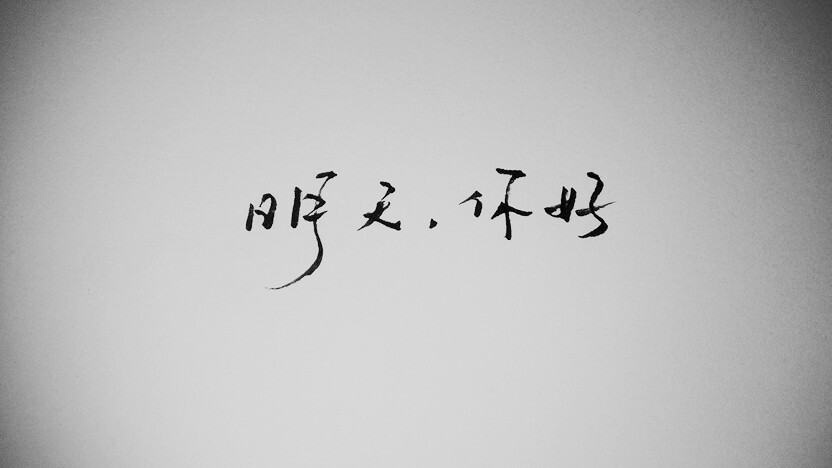 明天，你好